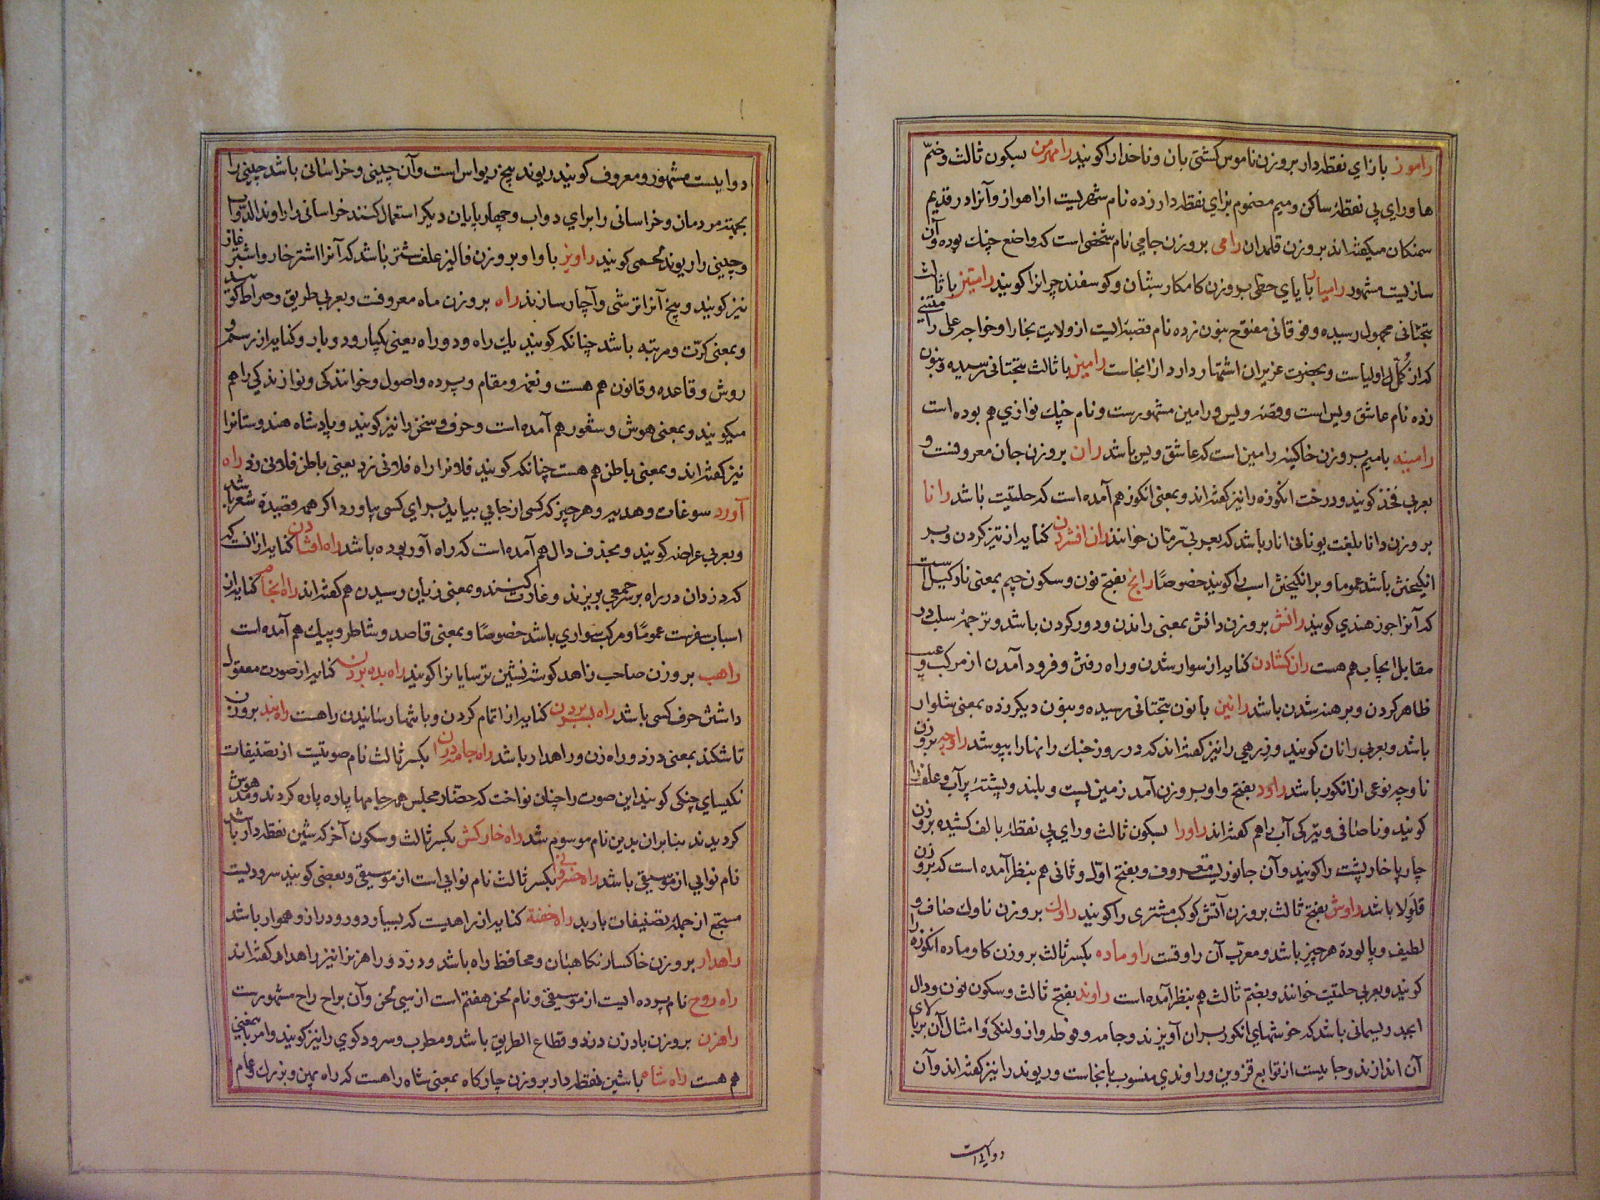 راموز بازای نقطه‌دار بروزن ناموس کشتی بان و ناخدا را کویند رامهرمز بسکون ثالث و ضمّ
ها و رای بی نقطهٔ ساکن و میم مضموم بزای نقطه‌دار زده نام شهریست از اهواز و آنرا در قدیم
سمنکان میکفته‌اند بروزن قلمدان رامی بروزن جامی نام شخصی است که واضع چنك بوده و آن
سازیست مشهور رامیار بایای حطی بروزن کامکار شبان و کوسفند چران را کویند رامیتن با ثالث
بتحتانی مجهول رسیده و فوقانی مفتوح بنون زده نام قصبه‌ایست از ولایت بخارا و خواجه علی رامیتنی
که از کُمّل اولیاست و بحضرت عزیزان اشتهار دارد از آنجاست رامین با ثالث بتحتانی رسیده و بنون
زده نام عاشق ویس است و قصهٔ ویس و رامین مشهورست و نام چنك نوازی هم بوده است
رامینه بامیم بروزن خاکینه رامین است که عاشق ویس باشد ران بروزن جان معروفست و
بعربی فخذ کویند و درخت انکوزه را نیز کفته‌اند و بمعنی انکوزه هم آمده است که حلتیت باشد رانا
بروزن دانا بلغت یونانی انار باشد که بعربی رمّان خوانند ران افشردن کنایه از تیز کردن و بر
انکیختن باشد عموما و برانکیختن اسب را کویند خصوصًا رانج بفتح نون و سکون جیم بمعنی نارکیل است
که آنرا جوز هندی کویند رانش بروزن دانش بمعنی راندن و دور کردن باشد و ترجمهٔ سلب در
مقابل ایجاب هم هست ران کشادن کنایه از سوار شدن و راه رفتن و فرود آمدن از مرکب و عیب
ظاهر کردن و برهنه شدن باشد رانین با نون بتحتانی رسیده و بنون دیکر زده بمعنی شلوار
باشد و بعربی رانان کویند و زرهی را نیز کفته‌اند که در روز جنك رانها را بپوشد راوچه بروزن
ناوچه نوعی از انکور باشد راود بفتح واو بروزن آمد زمین پست و بلند و پشته پرآب و علف را
کویند و ناصافی و تیرکی آب را هم کفته‌اند راورا بسکون ثالث و رای بی نقطهٔ بالف کشیده بروزن
چارپا خارپشت را کویند و آن جانوریست معروف و بفتح اوّل و ثانی هم بنظر آمده است که بروزن
قلولا باشد راوش بفتح ثالث بروزن آتش کوکب مشتری را کویند راوك بروزن ناوك صاف و
لطیف و پالودهٔ هر چیز باشد و معرّب آن راوقست راوماده بکسر ثالث بروزن کاوماده انکوزه را
کویند و بعربی حلتیت خوانند و بضمّ ثالث هم بنظر آمده است راوند بفتح ثالث و سکون نون و دال
ابجد ریسمانی باشد که خوشهای انکور بران آویزند و جامه و فوطه و ازار و لنکی و امثال آن بر بالای
آن اندازند و جاییست از توابع قزوین و راوندی منسوب بانجاست و ریوند را نیز کفته‌اند و آن
دوایست
دوایست مشهور و معروف کویند ریوند بیخ ریواس است و آن چینی و خراسانی باشد چینی را
بجهة مردمان و خراسانی را برای دواب و چهارپایان دیکر استعمال کنند خراسانی را راوند الدّواب
و چینی را ریوند لحمی کویند راویز با واو بروزن فالیز علف شتر باشد که آنرا اشترخار و اشترغاز
نیز کویند و بیخ آنرا ترشی و آچار سازند راه بروزن ماه معروفست و بعربی طریق و صراط کویند
و بمعنی کرّت و مرتبه باشد چنانکه کویند یك راه و دو راه یعنی یکبار و دو بار و کنایه از رسم و
روش و قاعده و قانون هم هست و نغمه و مقام و پرده و اصول و خوانندکی و نوازندکی را هم
میکویند و بمعنی هوش و شعور هم آمده است و حرف و سخن را نیز کویند و پادشاه هندوستانرا
نیز کفته‌اند و بمعنی باطن هم هست چنانکه کویند فلانرا راه فلانی زد یعنی باطن فلانی زد راه
آورد سوغات و هدیه و هر چیز که کسی از جایی بیاید برای کسی بیاورد اکر همه قصیدهٔ شعر باشد
و بعربی عراضه کویند و بحذف دال هم آمده است که راه آور بوده باشد راه افشاندن کنایه از انست که
که دزدان در راه بر جمعی بریزند و غارت کنند و بمعنی زیان رسیدن هم کفته‌اند راه انجام کنایه از
اسباب سفرست عموما و مرکب سواری باشد خصوصًا و بمعنی قاصد و شاطر و پیك هم آمده است
راهب بروزن صاحب زاهد کوشه نشین ترسایانرا کویند راه بده بردن کنایه از صورت معقول
داشتن حرف کسی باشد راه بسر بردن کنایه از اتمام کردن و باشمار رسانیدن راهست راه بند بروزن
تاشکند بمعنی دزد و راه زن و راهدار باشد راه جامه دران بکسر ثالث نام صوتیست از تصنیفات
نکیسای چنکی کویند این صوت را چنان نواخت که حضّار مجلس همه جامها پاره پاره کردند و مدهوش
کردیدند بنابران بدین نام موسوم شد راه خارکش بکسر ثالث و سکون آخر که شین نقطه‌دار باشد
نام نوایی از موسیقی باشد راه خسروانی بکسر ثالث نام نوایی است از موسیقی و بعضی کویند سرودیست
مسجّع از جمله تصنیفات باربد راه خفته کنایه از راهیست که بسیار دور و دراز و هموار باشد
راهدار بروزن خاکسار نکاهبان و محافظ راه باشد و دزد و راهزن را نیز راهدار کفته‌اند
راه روح نام پرده ایست از موسیقی و نام لحن هفتم است از سی لحن و آن براح راح مشهورست
راهزن بروزن بادزن دزد و قطاع الطریق باشد و مطرب و سرودکوی را نیز کویند و امر باین معنی
هم هست راه شاه باشین نقطه‌دار بروزن چارکاه بمعنی شاه راهست که راه پهن و بزرك و عام